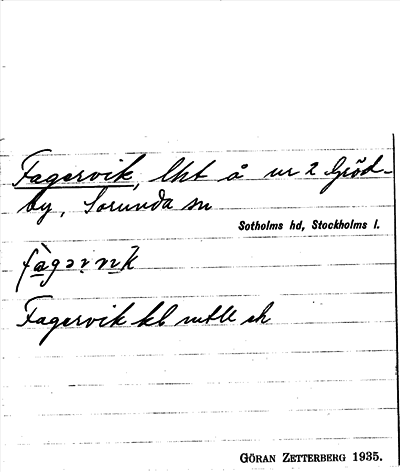 Fagervik, lht å nr 2 Gröd-
by, Sorunda sn
Sotholms hd, Stockholms l.
Fagervik kb
GÖRAN ZETTERBERG 1935.